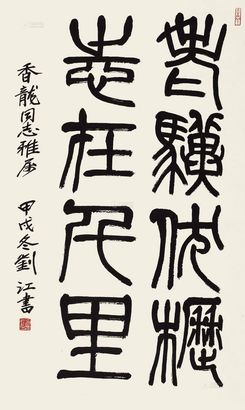 老驥伏櫪
志在千里
香龍同志雅属 甲戌冬劉江書